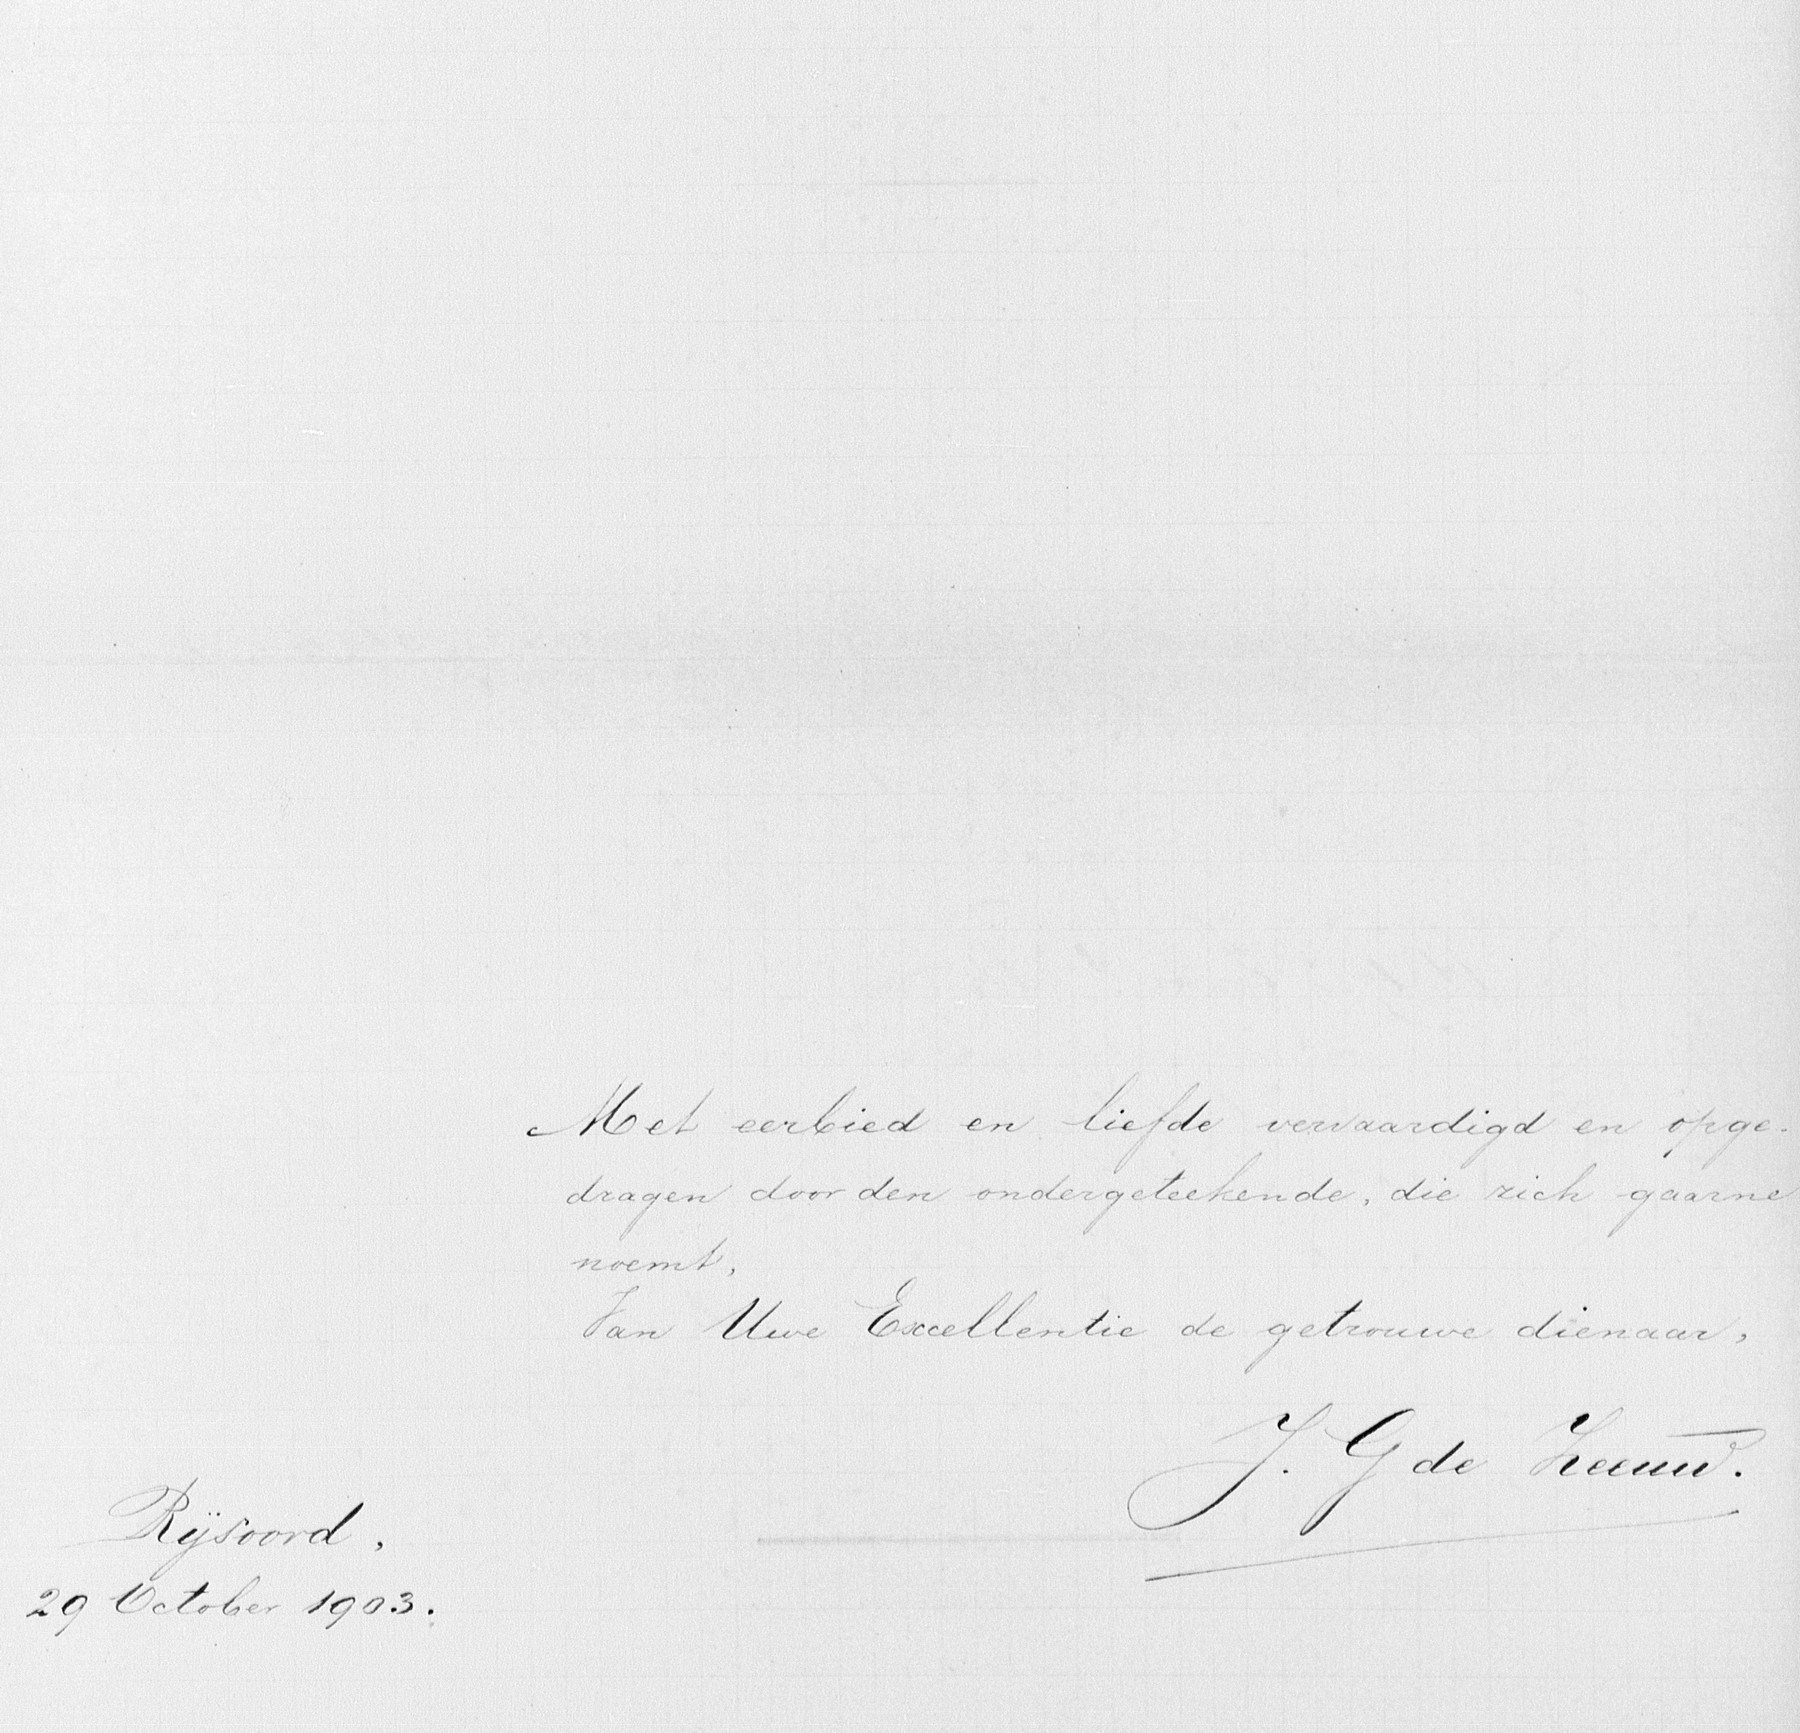 Met eerbied en liefde vervaardigd en opge-
dragen door den ondergeteekende, die zich gaarne
noemt,
Van Uwe Excellentie de getrouwe dienaar,
J. G de Zeeuw.
Rijsoord,
29 October 1903.